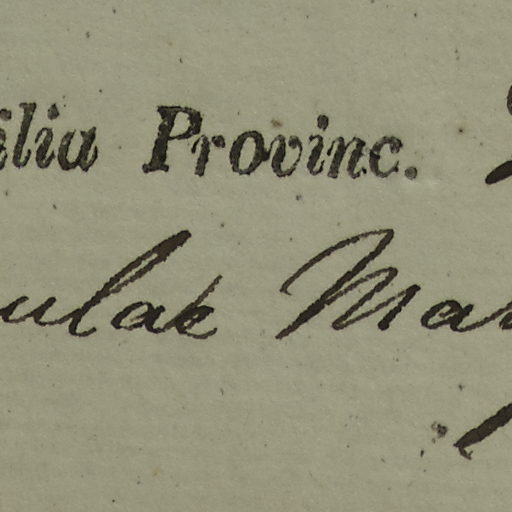 ilia Provinc.
ulak Mar